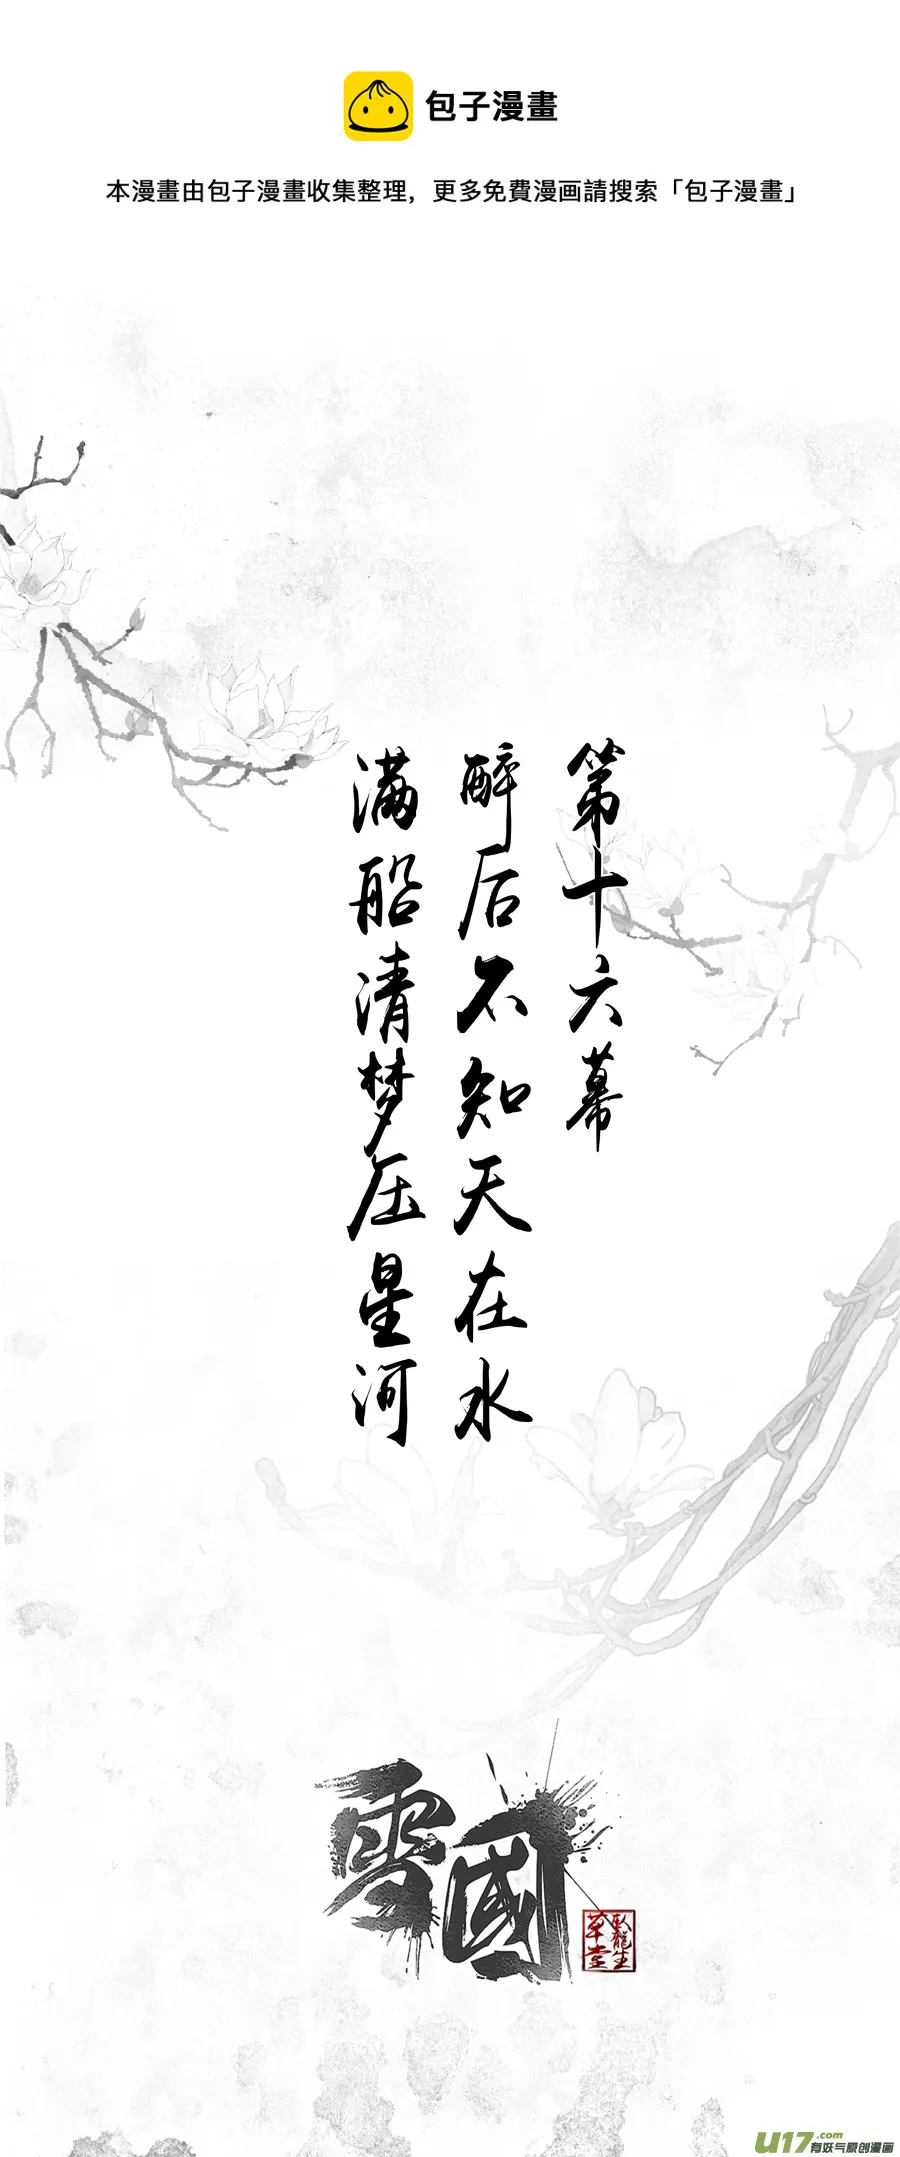 包子漫畫
本漫畫由包子漫畫收集整理，更多免費漫画請搜索「包子漫畫」
第十六幕
醉后不知天在水
满船清梦压星河
雪國
臥龍生
草堂
U17.com
有妖气原创漫画